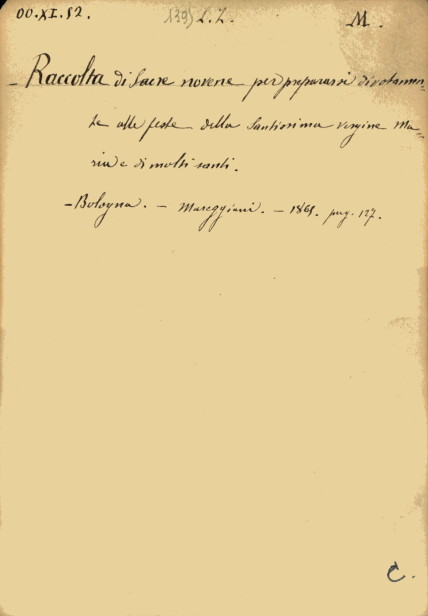 OO.XI.52.
(39) L.L. M.
- Raccolta di Sacre novene per prepararsi divotamen=
te alle feste della Santissima vergine Ma=
ria e di molti santi.
- Bologna. - Mareggiani. - 1861. pag. 127.
C.